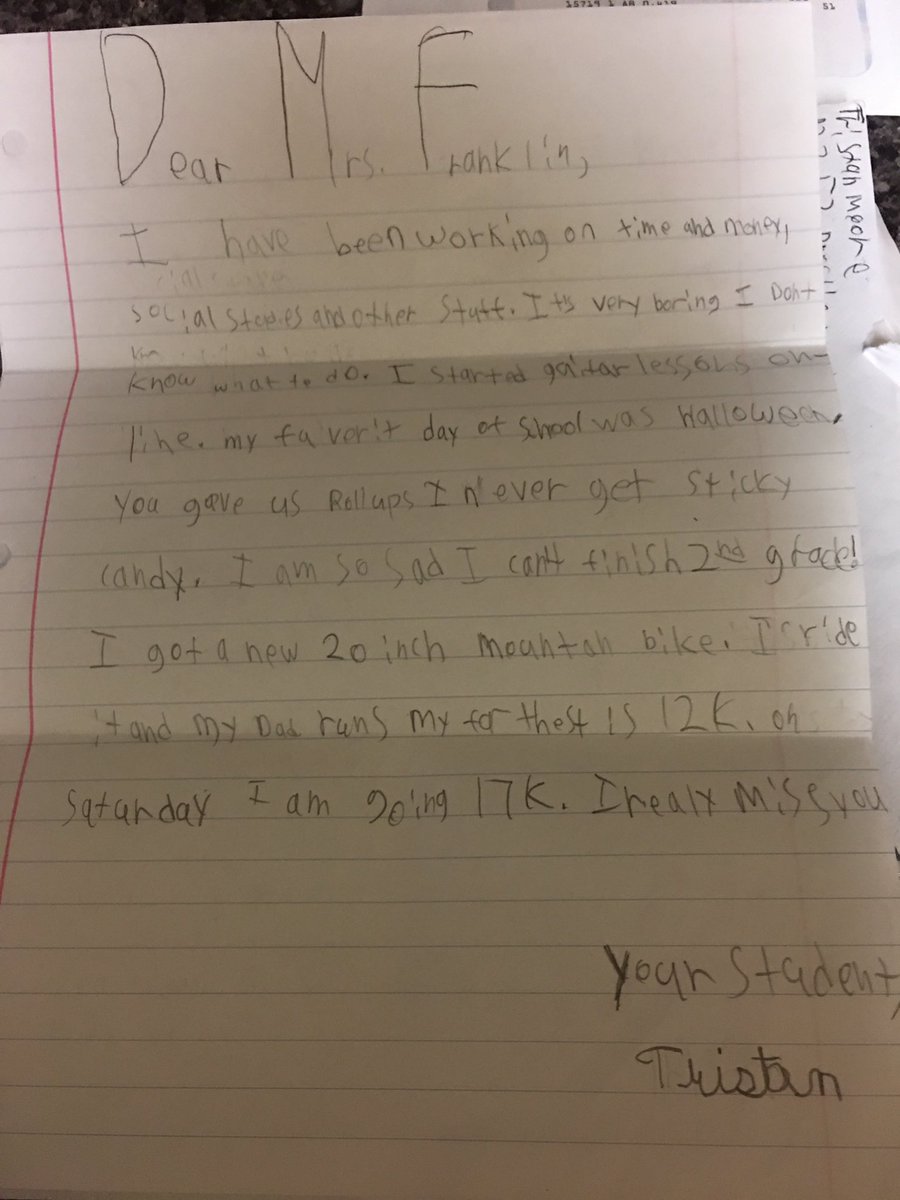 15714 1 AB 0.416
51
Dear Mrs. Franklin,
I have been working on time and money,
social studies and other stuff. It's very boring I Don't
know what to do. I started gaitar lessons on-
line. my favorit day of school was Halloween,
you gave us Rollups I never get sticky
candy. I am so sad I can't finish 2nd grade!
I got a new 20 inch mountan bike. I ride
it and my Dad runs my forthest is 12K. on
Saturday I am going 17K. I realy miss you
Your Student,
Tristan
Tristan Moore